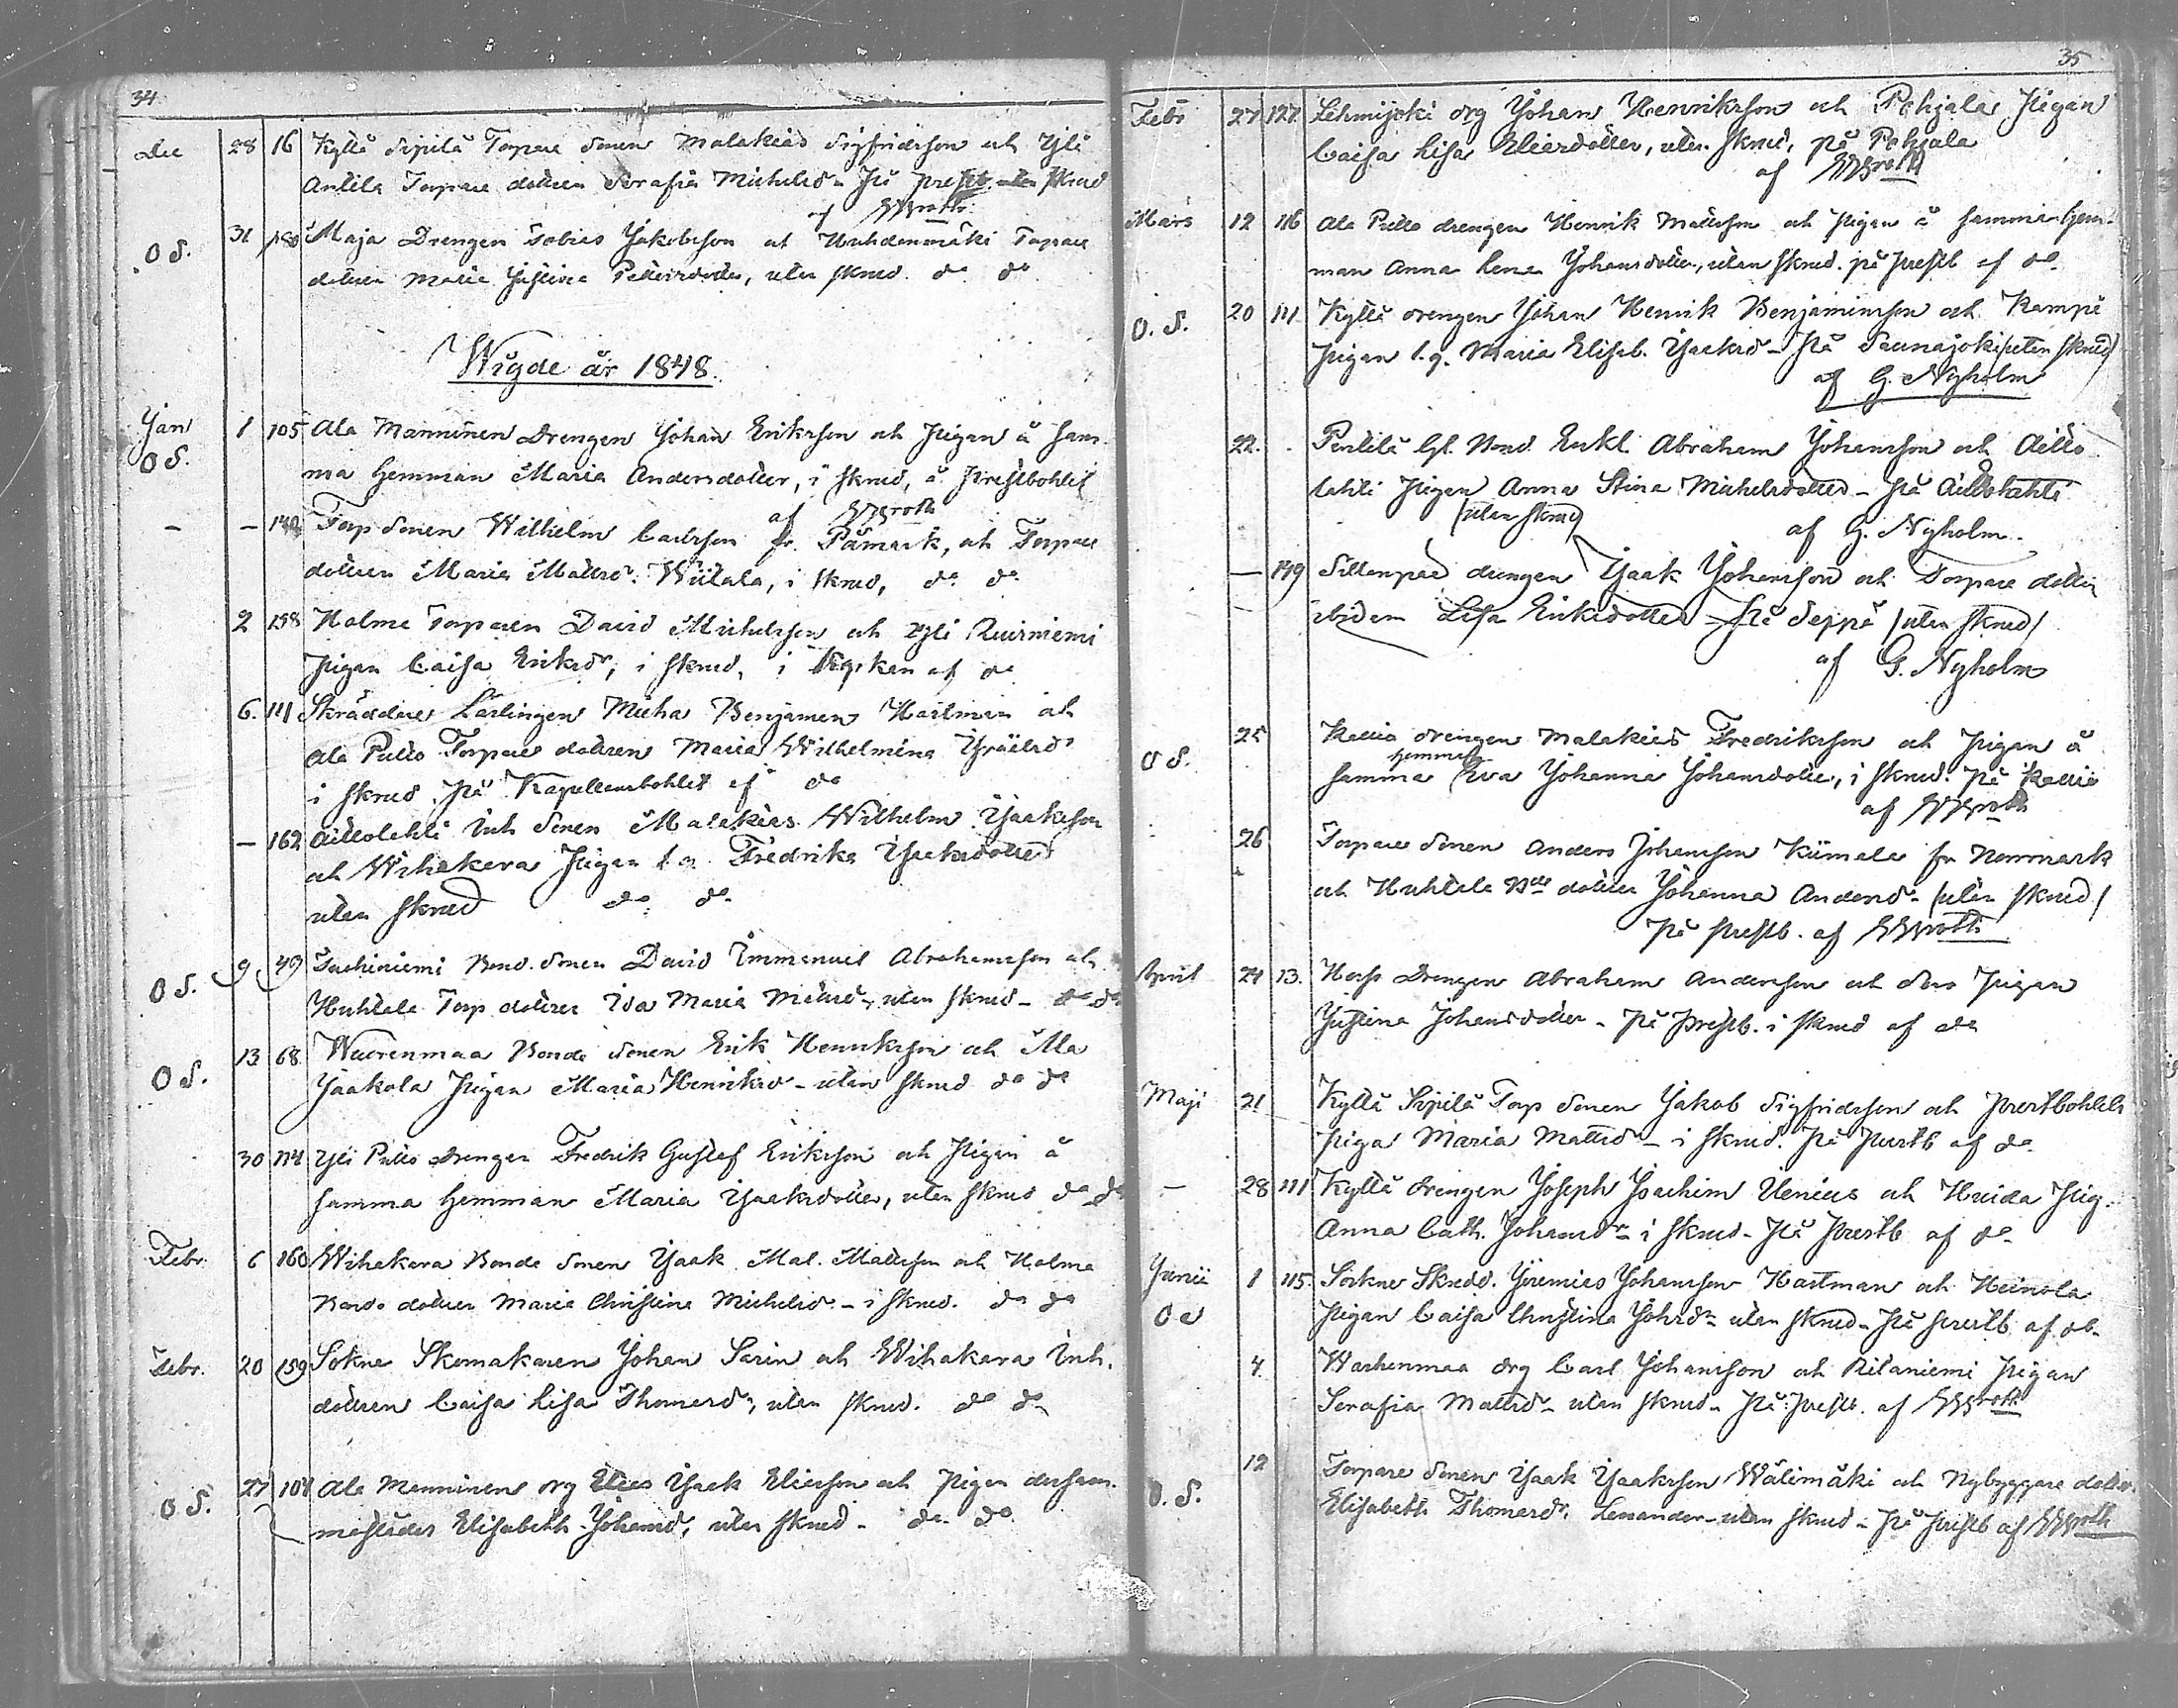 34
Dec 28 16 Kyllä Sipilä Torpare Sonen Malakias Sigfridsson och Yli
Antila Torpare dottren Serafia Michelsdr På prestb. utan skrud
af
O S. 31 180 Maja Drengen Tobias Jakobsson och Huhdanmäki Torpare
dottren Maria Justina Pettersdotter, utan skrud. do do
Wigde år 1848.
Jan 1 105 Ala Manninen Drengen Johan Eriksson och Pigan å sam-
O S. ma Hemman Maria Andersdotter, i skrud, å Prestbohlet
af
– – Torp Sonen Wilhelm Carlsson fr. Påmark, och Torpare
dottren Maria Mattsdr. Wiitala, i skrud, do do
2 158 Holma Torparen David Michelsson och Yli Ruisniemi
Pigan Caisa Eriksdr, i skrud, i Kyrkan af do
6. 111 Skräddare Lärlingen Micha Benjamin Hartman och
Ala Pullo Torpare dottren Maria Wilhelmina Israelsdr
i skrud. På Kapellansbohlet af do
– 162 Aittolahti Inh Sonen Malakias Wilhelm Isaksson
och Wihakara Pigan f.q. Fredrika Isaksdotter
utan skrud do do
O S. 9 49 Bond. Sonen David Immanuel Abrahamsson och
Huhtala Torp dottren Ida Maria Mattsdr, utan skrud – do do
O S. 13 68. Wuorenmaa Bonde Sonen Erik Henriksson och Ala
Jaakola Pigan Maria Henriksdr – utan skrud do do
30 114 Yli Pullo Drengen Fredrik Gustaf Eriksson och Pigan å
samma Hemman Maria Isaksdotter, utan skrud do do
Febr. 6 160 Wihakara Bonde Sonen Isaak Mal. Mattsson och Holma
Bonde dottren Maria Christina Michelsdr – i skrud. do do
Febr. 20 159 Sokne Skomakaren Johan Sarin och Wihakara Inh.
dottren Caisa Lisa Thomasdr, utan skrud. do do
O S. 27 104 Ala Manninen drg Elias Isaak Eliasson och Pigan dersam-
mastädes Elisabeth Johansdr, utan skrud – do do
35
Febr 27 127. Lehmijoki drg Johan Henriksson och Pohjala Pigan
Caisa Lisa Eliasdotter, utan skrud, på Pohjala
af
Mars 12 116 Ala Pullo drengen Henrik Mattsson och pigan å samma Hem-
man Anna Lena Johansdotter, utan skrud. på prestb af do
O. S. 20 111 Kyllä drengen Johan Henrik Benjaminsson och Kampi
Pigan f.q. Maria Elisab. Isaksdr – På Paunajoki (utan skrud)
af G. Nyholm
22. Penttilä Abraham Johansson och Aitto
lahti Pigan Anna Stina Michelsdotter – På Aittolahti
(utan skrud)
af G. Nyholm.
– 149 Sillanpää drengen Isaak Johansson och Torpare dottren
ibidem Lisa Eriksdotter – På Seppä /utan skrud/
af G. Nyholm
O S. 25 Kallio drengen Malakias Fredriksson och Pigan å
hemman
samma Eva Johanna Johansdotter, i skrud. på Kallio
af
26 Torpare Sonen Anders Johansson Kiimala fr Norrmark
och Huhtala Bde dottren Johanna Andersdr – /utan skrud/
På prestb. af
April 24 13. Drengen Abraham Andersson och Pigan
Justina Johansdotter – På prestb. i skrud af do
Maji 21 Kyllä Sipilä Torp Sonen Jakob Sigfridsson och Prestbohlets
Piga Maria Mattsdr – i skrud. På Prestb af do
– 28 111 Kyllä drengen Joseph Joachim Uenius och Huida Pig.
Anna Cath. Johansdr – i skrud – På Prestb af do
Junii 1 115. Sokne Skrädd. Jeremias Johansson Hartman och Heinola
Pigan Caisa Christina Johsdr – utan skrud – På prestb af do
4. drg Carl Johansson och Ritaniemi Pigan
Serafia Mattsdr – utan skrud – På prestb. af
O. S. 12 Torpare Sonen Isaak Isaksson Wälimäki och Nybyggare dotter.
Elisabeth Thomasdr. Lenander – utan skrud – På prestb af